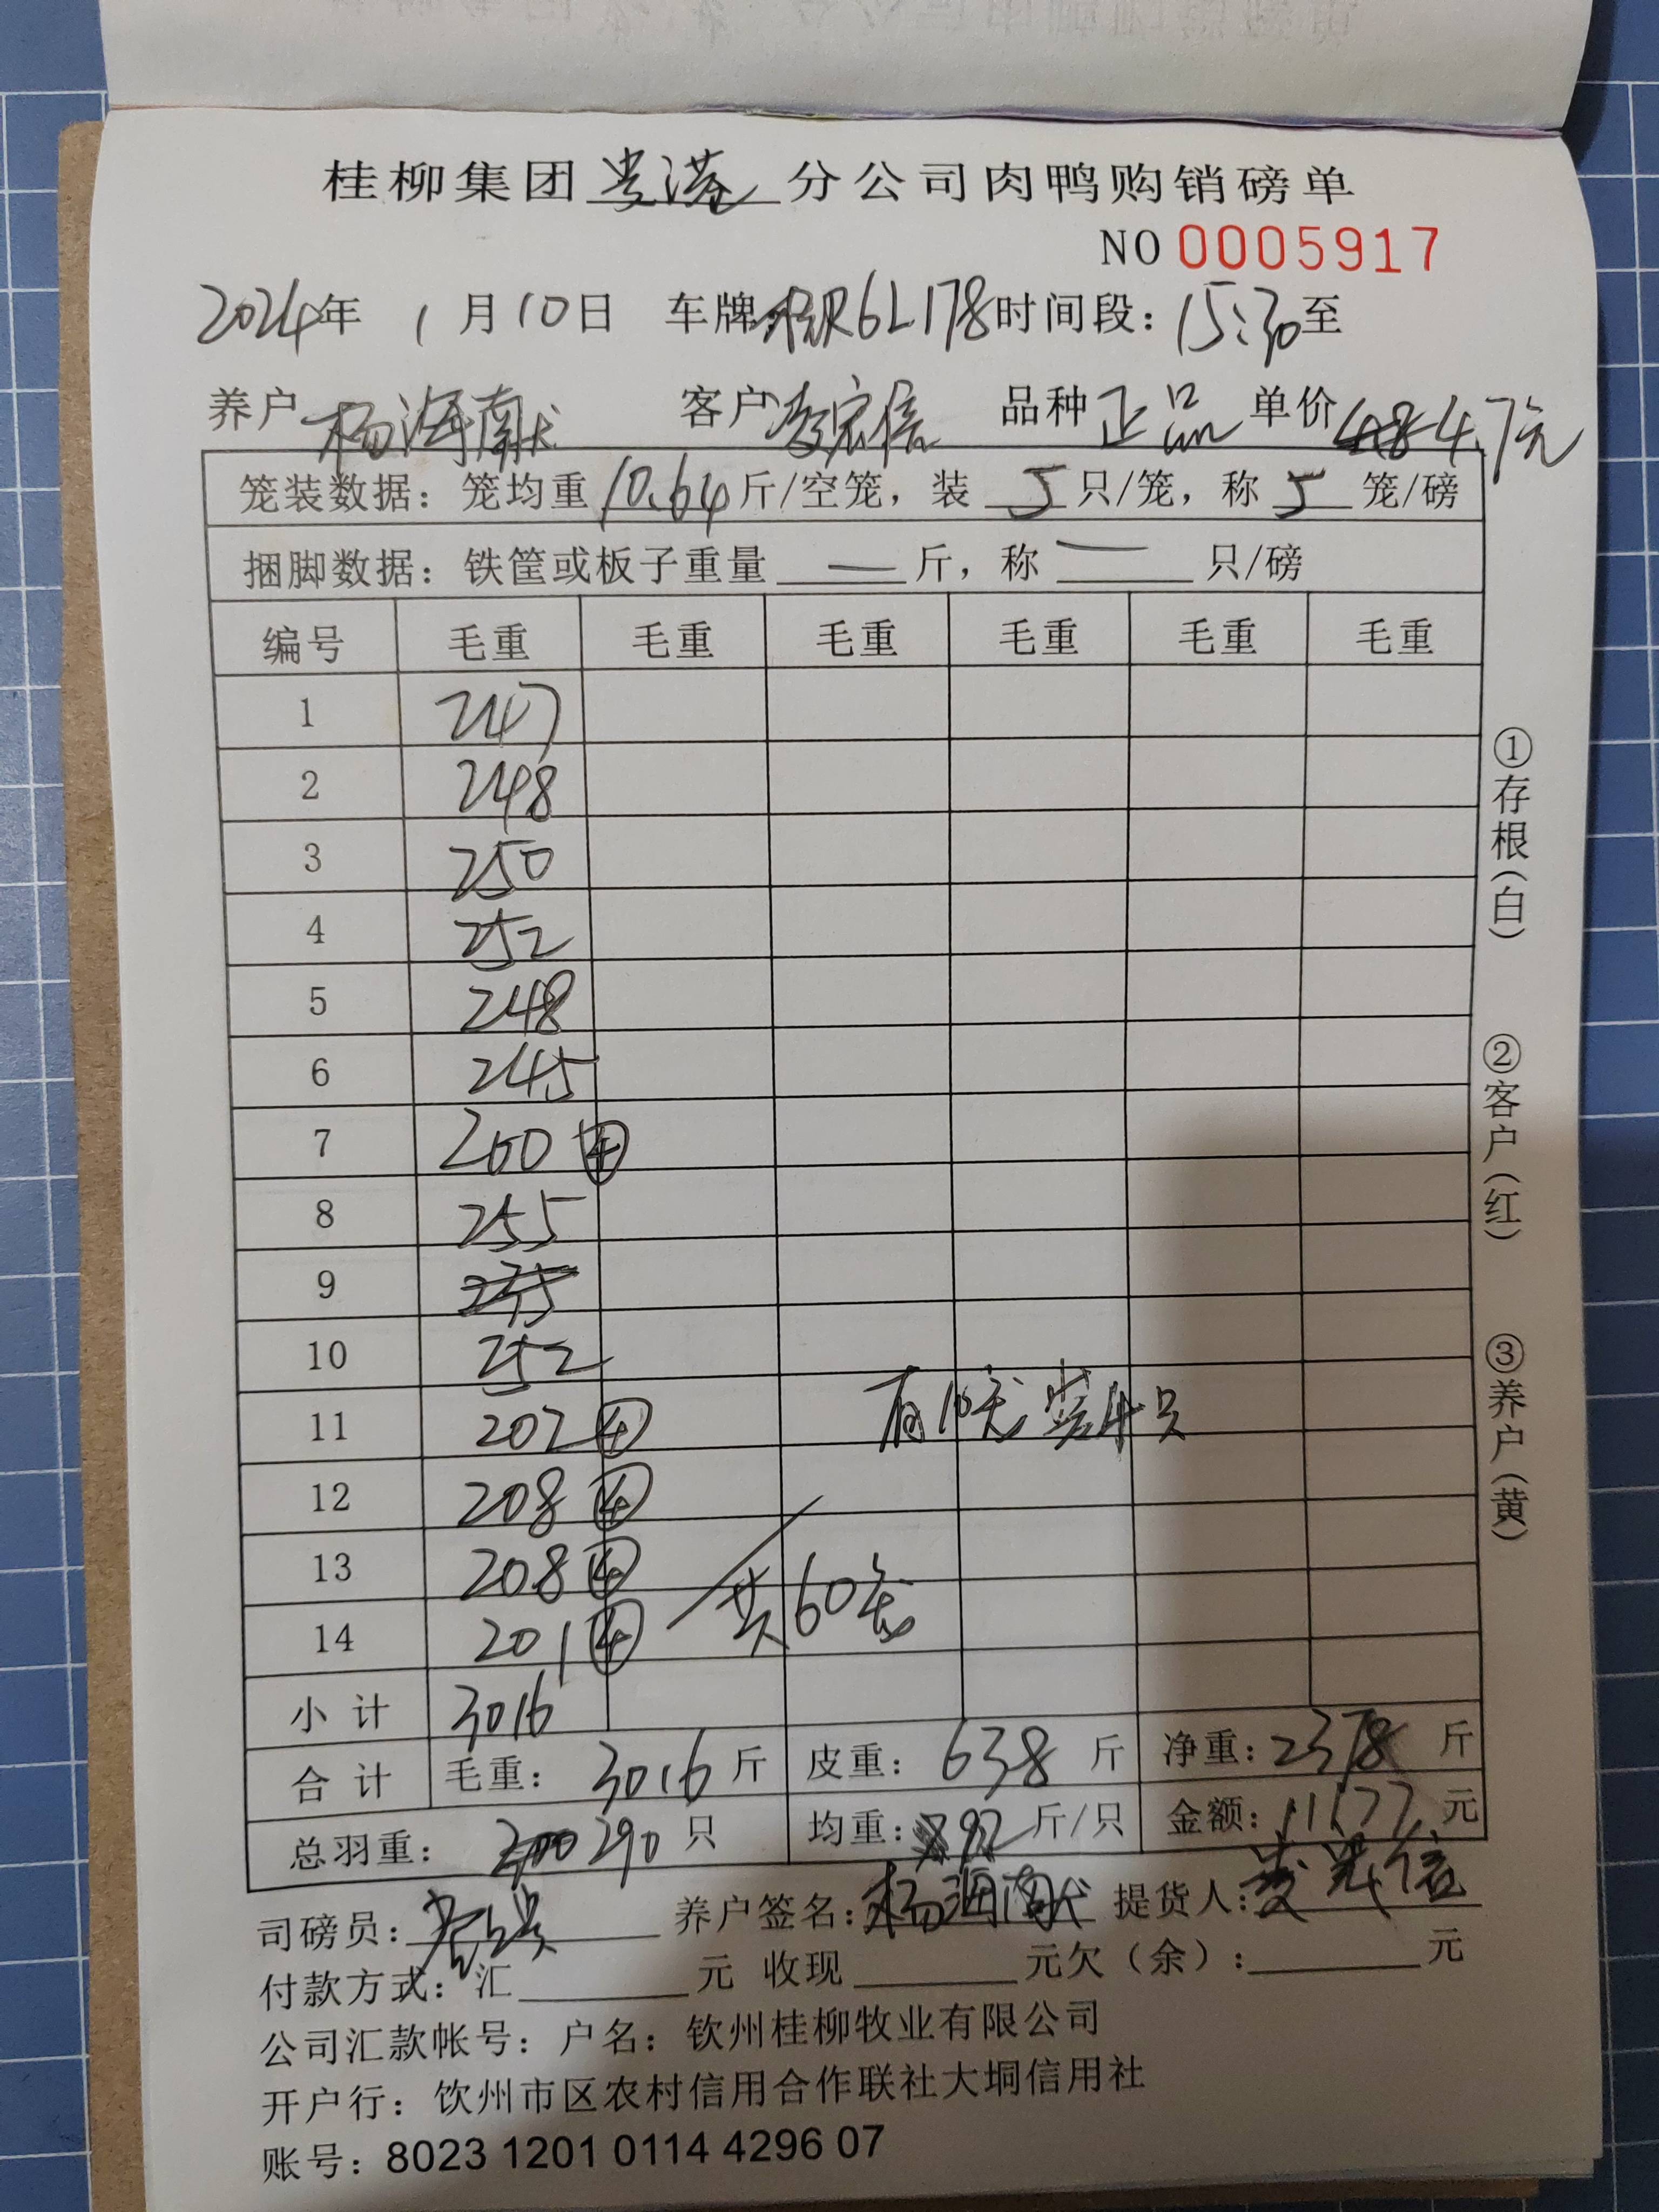 桂柳集团贵港分公司肉鸭购销磅单
NO 0005917
2024年 1月10日 车牌:桂R6L178时间段：15:30至
养户 杨海南犬 客户 品种 正品 单价 4.7元
笼装数据：笼均重10.64斤/空笼，装 5 只/笼，称 5 笼/磅
捆脚数据：铁筐或板子重量 — 斤，称 — 只/磅
编号 毛重 毛重 毛重 毛重 毛重 毛重
1 247
2 248
3 250
4 252
5 248
6 245
7 200 ④
8 255
9
10 252
11 202 ④
有10笼 装4只
12 208 ④
13 208 ④
共60笼
14 201 ④
小 计 3016
合 计 毛重： 3016 斤 皮重： 638 斤 净重：2378 斤
总羽重： 290 只 均重： 斤/只 金额：11177 元
司磅员： 养户签名： 提货人：
付款方式：汇 元 收现 元欠（余）： 元
公司汇款帐号：户名：钦州桂柳牧业有限公司
开户行：钦州市区农村信用合作联社大垌信用社
账号：8023 1201 0114 4296 07
①存根（白）
②客户（红）
③养户（黄）